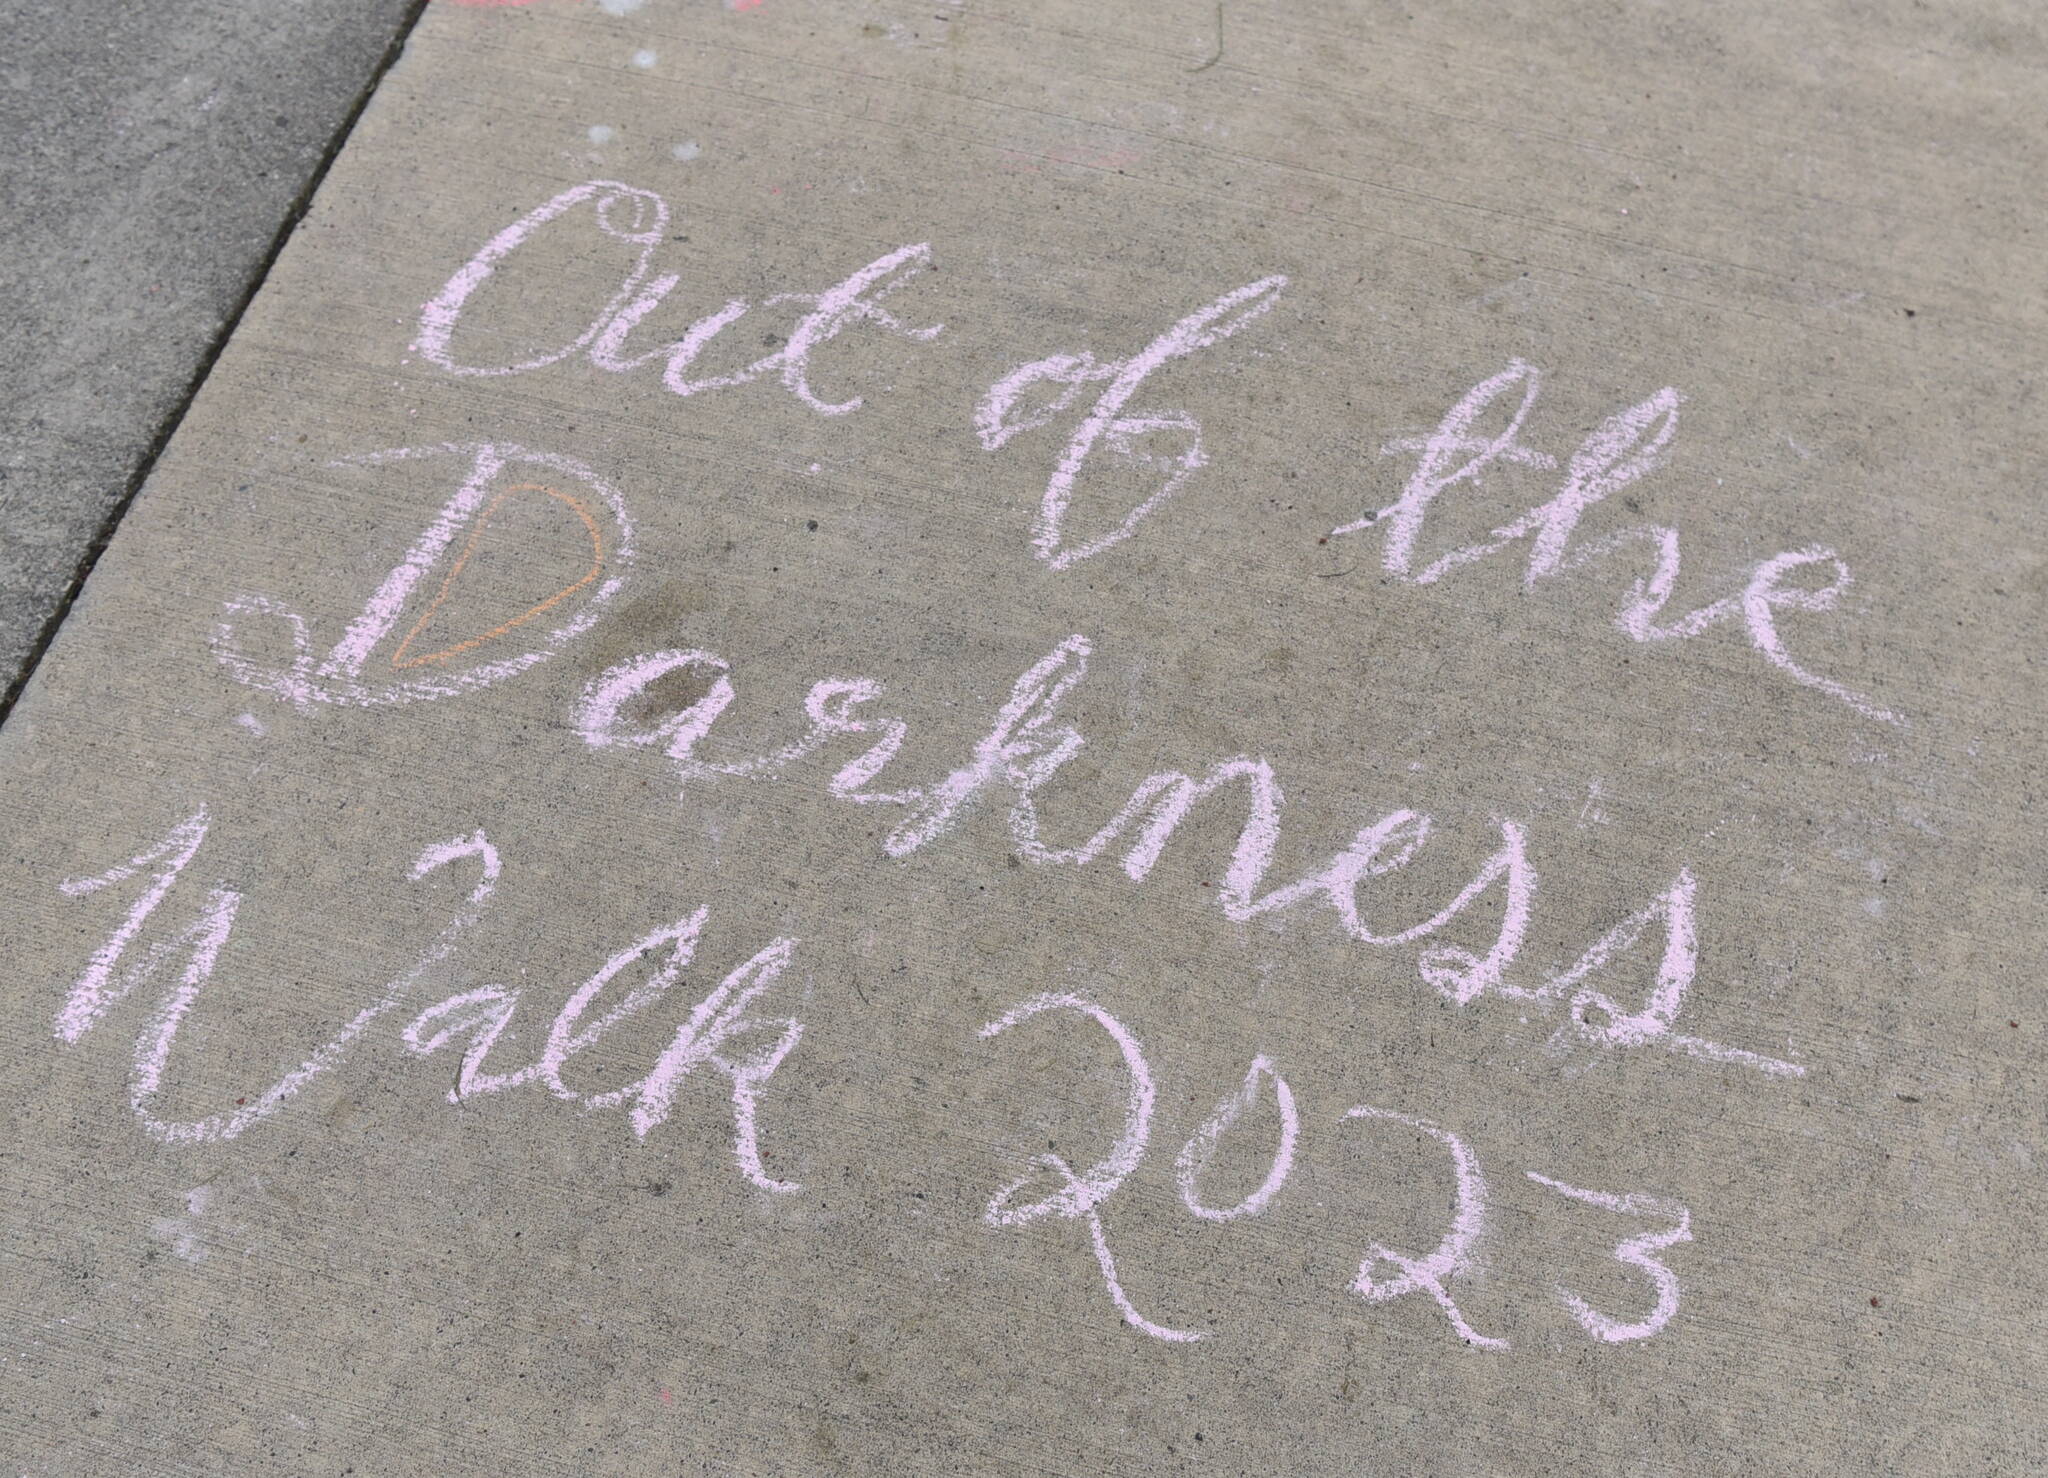 Out of the
Darkness
Walk 2023